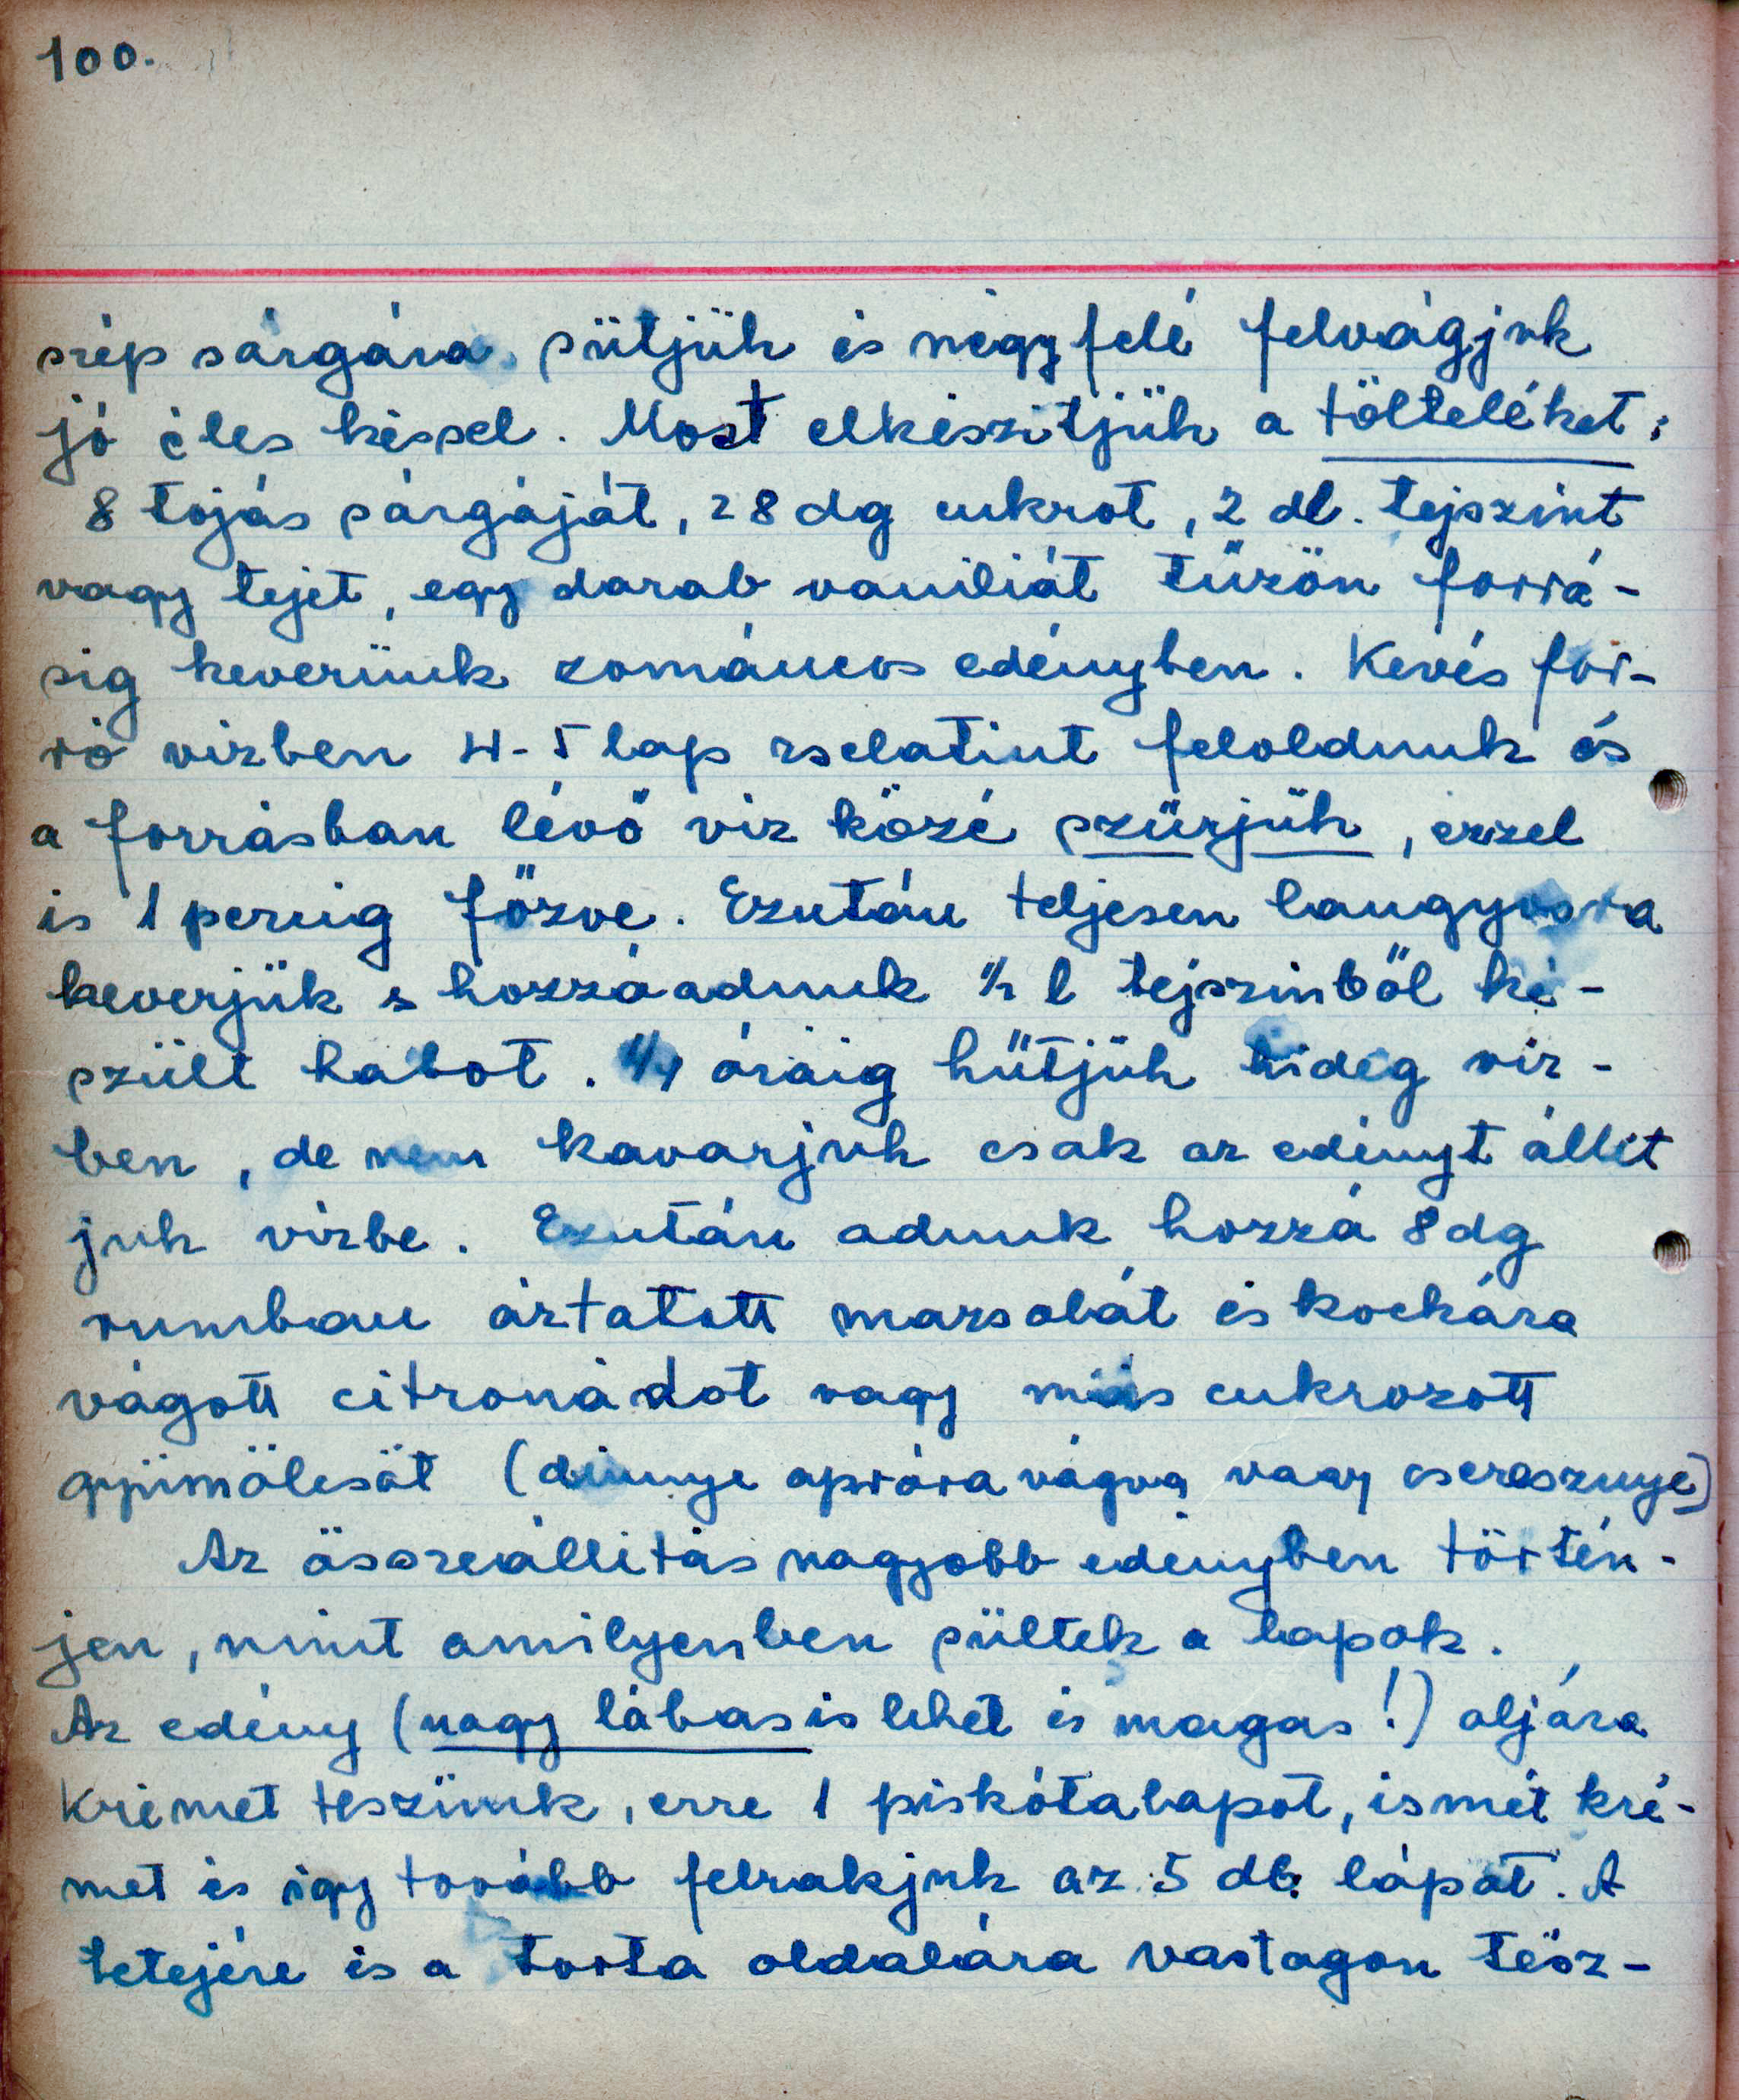 100.
szép sárgára sütjük és négyfelé felvágjuk
jó éles késsel. Most elkészitjük a tölteléket:
8 tojás sárgáját, 28 dg cukrot, 2 dl. tejszint
vagy tejet, egy darab vaniliát tűzön forrá-
sig keverünk zománcos edényben. Kevés for-
ró vizben 4-5 lap zselatint feloldunk és
a forrásban lévő viz közé szűrjük, ezzel
is 1 percig főzve. Ezután teljesen langyosra
keverjük s hozzáadunk 1/2 l tejszinből ké-
szült habot. 1/4 óráig hűtjük hideg viz-
ben, de nem kavarjuk csak az edényt állit
juk vizbe. Ezután adunk hozzá 8 dg
rumban áztatott mazsolát és kockára
vágott citronádot vagy más cukrozott
gyümölcsöt (dinnye apróra vágva vagy cseresznye)
Az összeállitás nagyobb edényben történ-
jen, mint amilyenben sültek a lapok.
Az edény (nagy lábas is lehet és magas!) aljára
krémet teszünk, erre 1 piskótalapot, ismét kré-
met és igy tovább felrakjuk az 5 db lapot. A
tetejére és a torta oldalára vastagon tesz-